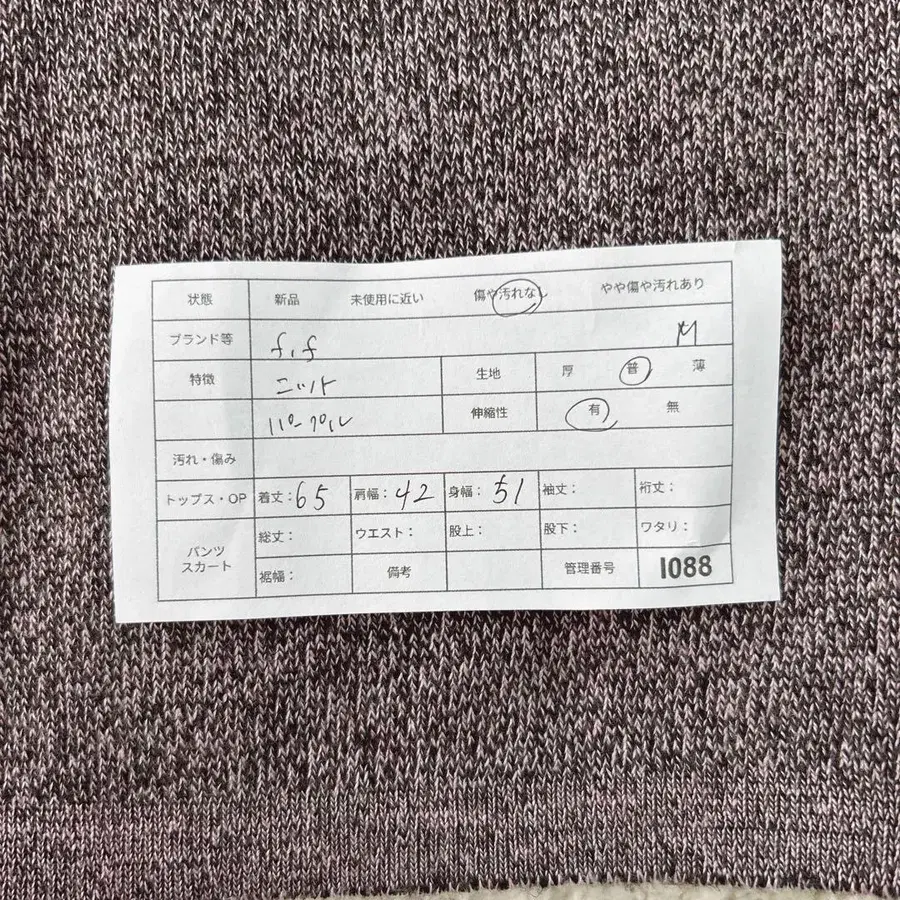 状態 新品 未使用に近い 傷や汚れなし やや傷や汚れあり
ブランド等 f.f M
特徴 ニット 生地 厚 普 薄
パープル 伸縮性 有 無
汚れ・傷み
トップス・OP 着丈：65 肩幅：42 身幅：51 袖丈： 裄丈：
パンツ スカート 総丈： ウエスト： 股上： 股下： ワタリ：
裾幅： 備考 管理番号 1088